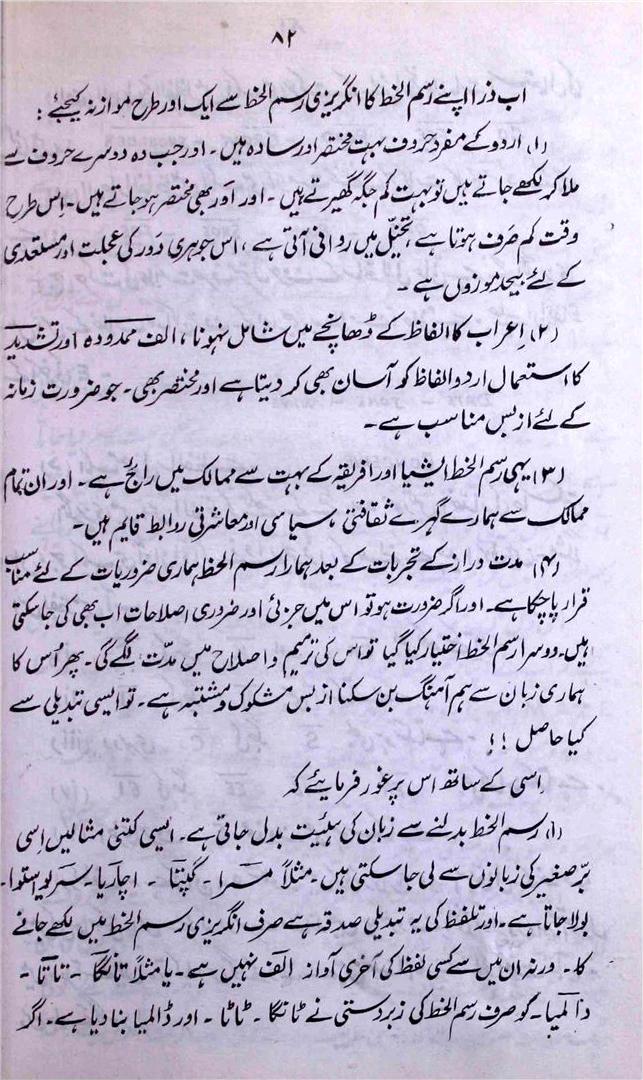 ۸۲
اب ذرا اپنے رسم الخط کا انگریزی رسم الخط سے ایک اور طرح موازنہ کیجئے :
(۱) اردو کے مفرد حروف بہت مختصر اور سادہ ہیں ۔ اور جب وہ دوسرے حروف سے
ملا کر لکھے جاتے ہیں تو بہت کم جگہ گھیرتے ہیں ۔ اور اَور بھی مختصر ہو جاتے ہیں ۔ اِس طرح
وقت کم صَرف ہوتا ہے ، تخیّل میں روانی آتی ہے ، اس جوہری دَور کی عجلت اور مستعدی
کے لئے بیحد موزوں ہے ۔
(۲) اِعراب کا الفاظ کے ڈھانچے میں شامل نہونا ، الف ممدودہ اور تشدید
کا استعمال اردو الفاظ کو آسان بھی کر دیتا ہے اور مختصر بھی ۔ جو ضرورت زمانہ
کے لئے از بس مناسب ہے ۔
(۳) یہی رسم الخط ایشیا اور افریقہ کے بہت سے ممالک میں رائج ہے ۔ اور ان تمام
ممالک سے ہمارے گہرے ثقافتی ، سیاسی اور معاشرتی روابط قایم ہیں ۔
(۴) مدت دراز کے تجربات کے بعد ہمارا رسم الخط ہماری ضروریات کے لئے مناسب
قرار پا چکا ہے ۔ اور اگر ضرورت ہو تو اس میں جزئی اور ضروری اصلاحات اب بھی کی جا سکتی
ہیں ۔ دوسرا رسم الخط اختیار کیا گیا تو اس کی ترمیم و اصلاح میں مدّت لگے گی ۔ پھر اُس کا
ہماری زبان سے ہم آہنگ بن سکنا از بس مشکوک و مشتبہ ہے ۔ تو ایسی تبدیلی سے
کیا حاصل !!
اِسی کے ساتھ اس پر غور فرمایئے کہ
(۱) رسم الخط بدلنے سے زبان کی ہیٔیت بدل جاتی ہے ۔ ایسی کتنی مثالیں اِسی
برّ صغیر کی زبانوں سے لی جا سکتی ہیں ۔ مثلاً مسرا ۔ گپتا ۔ اچاریا ۔ سریواستوا ۔
بولا جاتا ہے ۔ اور تلفظ کی یہ تبدیلی صدقہ ہے صرف انگریزی رسم الخط میں لکھے جانے
کا ۔ ورنہ ان میں سے کسی لفظ کی آخری آواز الف نہیں ہے ۔ یا مثلاً تانگا ۔ تاتا ۔
دالمیا ۔ گو صرف رسم الخط کی زبردستی نے ٹانگا ۔ ٹاٹا ۔ اور ڈالمیا بنا دیا ہے ۔ اگر